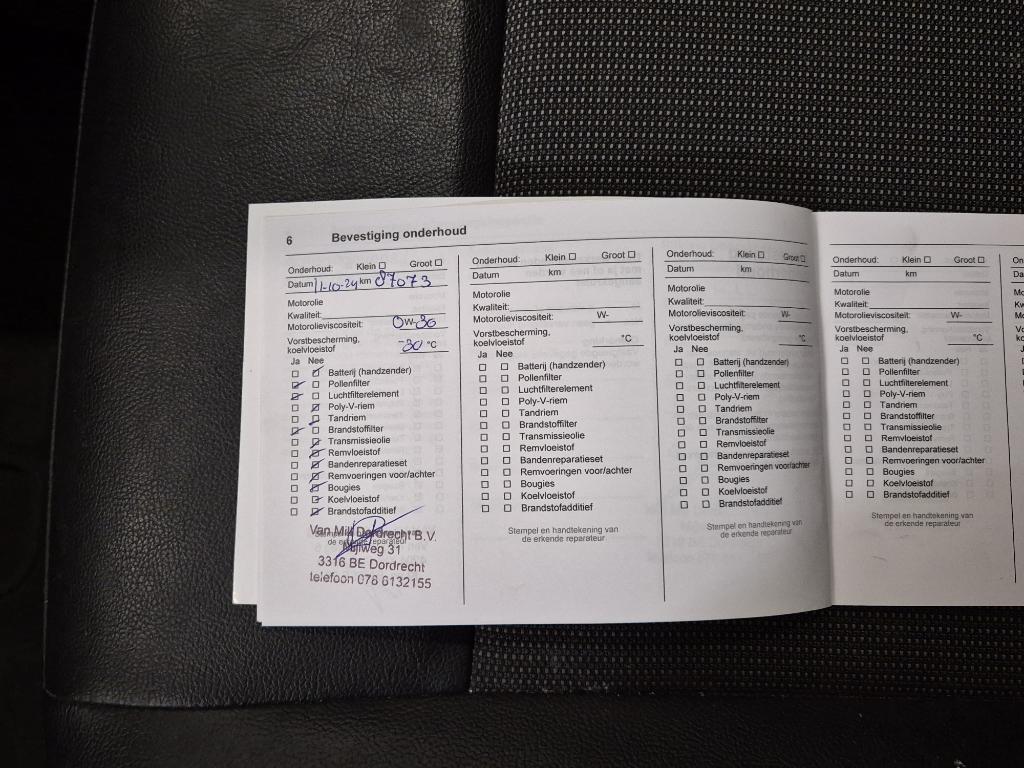 6 Bevestiging onderhoud
Onderhoud: Klein ☐ Groot ☐
Datum 11-10-24 km 87073
Motorolie
Kwaliteit:
Motorolieviscositeit: 0W-30
Vorstbescherming,
koelvloeistof -30 °C
Ja Nee
Batterij (handzender)
Pollenfilter
Luchtfilterelement
Poly-V-riem
Tandriem
Brandstoffilter
Transmissieolie
Remvloeistof
Bandenreparatieset
Remvoeringen voor/achter
Bougies
Koelvloeistof
Brandstofadditief
Van Mill Dordrecht B.V.
de erkende reparateur
31
3316 BE Dordrecht
telefoon 078 6132155
Onderhoud: Klein ☐ Groot ☐
Datum km
Motorolie
Kwaliteit:
Motorolieviscositeit: W-
Vorstbescherming,
koelvloeistof °C
Ja Nee
☐ ☐ Batterij (handzender)
☐ ☐ Pollenfilter
☐ ☐ Luchtfilterelement
☐ ☐ Poly-V-riem
☐ ☐ Tandriem
☐ ☐ Brandstoffilter
☐ ☐ Transmissieolie
☐ ☐ Remvloeistof
☐ ☐ Bandenreparatieset
☐ ☐ Remvoeringen voor/achter
☐ ☐ Bougies
☐ ☐ Koelvloeistof
☐ ☐ Brandstofadditief
Stempel en handtekening van
de erkende reparateur
Onderhoud: Klein ☐ Groot ☐
Datum km
Motorolie
Kwaliteit:
Motorolieviscositeit: W-
Vorstbescherming,
koelvloeistof °C
Ja Nee
☐ ☐ Batterij (handzender)
☐ ☐ Pollenfilter
☐ ☐ Luchtfilterelement
☐ ☐ Poly-V-riem
☐ ☐ Tandriem
☐ ☐ Brandstoffilter
☐ ☐ Transmissieolie
☐ ☐ Remvloeistof
☐ ☐ Bandenreparatieset
☐ ☐ Remvoeringen voor/achter
☐ ☐ Bougies
☐ ☐ Koelvloeistof
☐ ☐ Brandstofadditief
Stempel en handtekening van
de erkende reparateur
Onderhoud: Klein ☐ Groot ☐
Datum km
Motorolie
Kwaliteit:
Motorolieviscositeit: W-
Vorstbescherming,
koelvloeistof °C
Ja Nee
☐ ☐ Batterij (handzender)
☐ ☐ Pollenfilter
☐ ☐ Luchtfilterelement
☐ ☐ Poly-V-riem
☐ ☐ Tandriem
☐ ☐ Brandstoffilter
☐ ☐ Transmissieolie
☐ ☐ Remvloeistof
☐ ☐ Bandenreparatieset
☐ ☐ Remvoeringen voor/achter
☐ ☐ Bougies
☐ ☐ Koelvloeistof
☐ ☐ Brandstofadditief
Stempel en handtekening van
de erkende reparateur